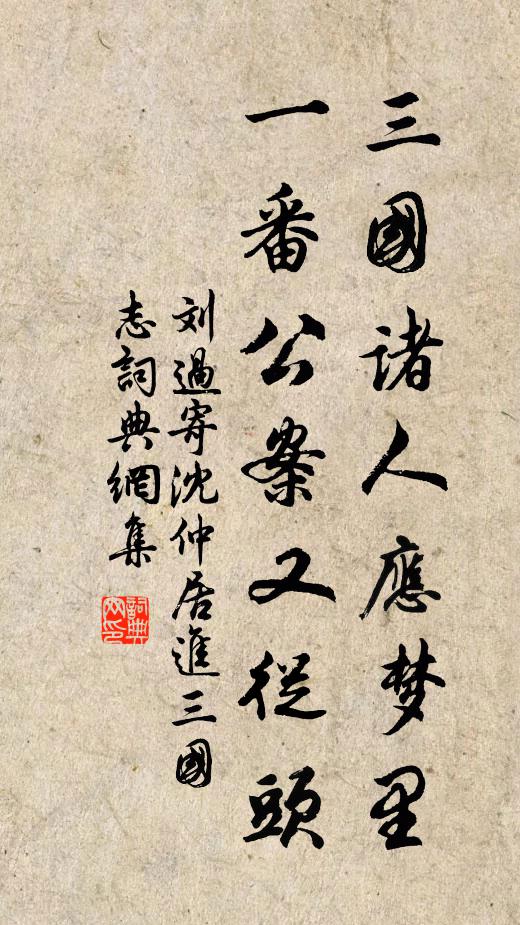 三國諸人應梦里
一番公案又從頭
刘過寄沈仲居進三國
志詞典網集
詞典网印